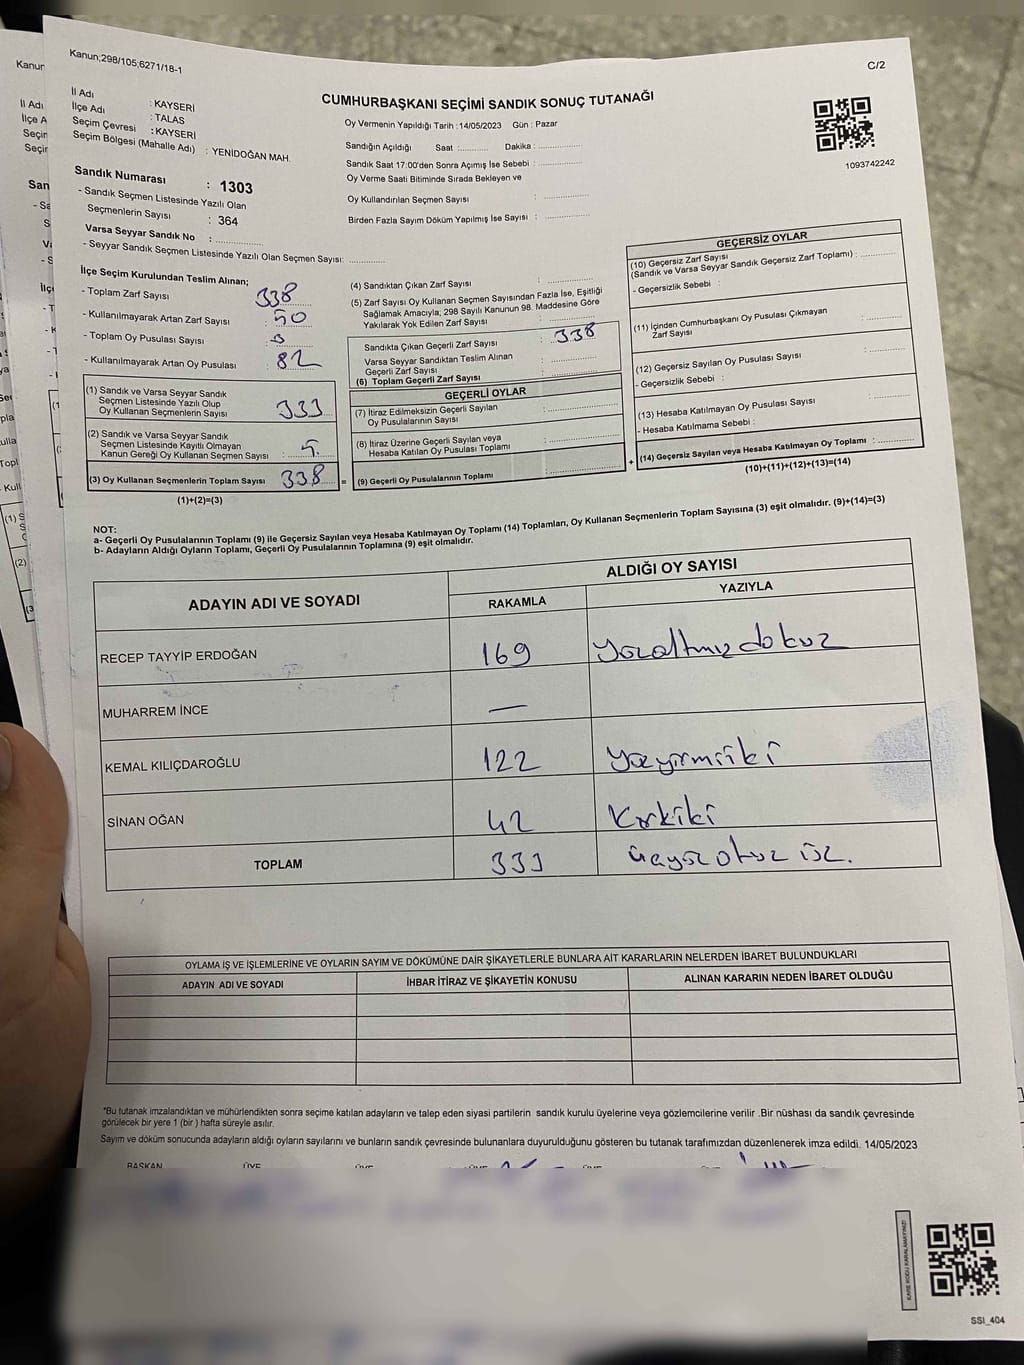 Kanun;298/105;6271/18-1
C/2
CUMHURBAŞKANI SEÇİMİ SANDIK SONUÇ TUTANAĞI
İl Adı : KAYSERİ
İlçe Adı : TALAS
Seçim Çevresi : KAYSERİ
Seçim Bölgesi (Mahalle Adı) : YENİDOĞAN MAH.
Sandık Numarası : 1303
- Sandık Seçmen Listesinde Yazılı Olan
Seçmenlerin Sayısı : 364
Varsa Seyyar Sandık No :
- Seyyar Sandık Seçmen Listesinde Yazılı Olan Seçmen Sayısı:
Oy Vermenin Yapıldığı Tarih :14/05/2023 Gün : Pazar
Sandığın Açıldığı Saat : Dakika :
Sandık Saat 17:00'den Sonra Açımış İse Sebebi :
Oy Verme Saati Bitiminde Sırada Bekleyen ve
Oy Kullandırılan Seçmen Sayısı :
Birden Fazla Sayım Döküm Yapılmış İse Sayısı :
1093742242
İlçe Seçim Kurulundan Teslim Alınan;
- Toplam Zarf Sayısı : 338
- Kullanılmayarak Artan Zarf Sayısı : 50
- Toplam Oy Pusulası Sayısı :
- Kullanılmayarak Artan Oy Pusulası : 82
(1) Sandık ve Varsa Seyyar Sandık
Seçmen Listesinde Yazılı Olup
Oy Kullanan Seçmenlerin Sayısı : 333
(2) Sandık ve Varsa Seyyar Sandık
Seçmen Listesinde Kayıtlı Olmayan
Kanun Gereği Oy Kullanan Seçmen Sayısı : 5
(3) Oy Kullanan Seçmenlerin Toplam Sayısı 338 =
(1)+(2)=(3)
(4) Sandıktan Çıkan Zarf Sayısı :
(5) Zarf Sayısı Oy Kullanan Seçmen Sayısından Fazla İse, Eşitliği
Sağlamak Amacıyla; 298 Sayılı Kanunun 98. Maddesine Göre
Yakılarak Yok Edilen Zarf Sayısı :
Sandıkta Çıkan Geçerli Zarf Sayısı : 338
Varsa Seyyar Sandıktan Teslim Alınan
Geçerli Zarf Sayısı :
(6) Toplam Geçerli Zarf Sayısı :
GEÇERLİ OYLAR
(7) İtiraz Edilmeksizin Geçerli Sayılan
Oy Pusulalarının Sayısı :
(8) İtiraz Üzerine Geçerli Sayılan veya
Hesaba Katılan Oy Pusulası Toplamı :
(9) Geçerli Oy Pusulalarının Toplamı : +
GEÇERSİZ OYLAR
(10) Geçersiz Zarf Sayısı
(Sandık ve Varsa Seyyar Sandık Geçersiz Zarf Toplamı) :
- Geçersizlik Sebebi :
(11) İçinden Cumhurbaşkanı Oy Pusulası Çıkmayan
Zarf Sayısı :
(12) Geçersiz Sayılan Oy Pusulası Sayısı :
- Geçersizlik Sebebi :
(13) Hesaba Katılmayan Oy Pusulası Sayısı :
- Hesaba Katılmama Sebebi :
(14) Geçersiz Sayılan veya Hesaba Katılmayan Oy Toplamı :
(10)+(11)+(12)+(13)=(14)
NOT:
a- Geçerli Oy Pusulalarının Toplamı (9) ile Geçersiz Sayılan veya Hesaba Katılmayan Oy Toplamı (14) Toplamları, Oy Kullanan Seçmenlerin Toplam Sayısına (3) eşit olmalıdır. (9)+(14)=(3)
b- Adayların Aldığı Oyların Toplamı, Geçerli Oy Pusulalarının Toplamına (9) eşit olmalıdır.
ADAYIN ADI VE SOYADI
ALDIĞI OY SAYISI
RAKAMLA YAZIYLA
RECEP TAYYİP ERDOĞAN 169 Yüzaltmışdokuz
MUHARREM İNCE —
KEMAL KILIÇDAROĞLU 122 Yüzyirmiiki
SİNAN OĞAN 42 Kırkiki
TOPLAM 333 üçyüz otuz üç.
OYLAMA İŞ VE İŞLEMLERİNE VE OYLARIN SAYIM VE DÖKÜMÜNE DAİR ŞİKAYETLERLE BUNLARA AİT KARARLARIN NELERDEN İBARET BULUNDUKLARI
ADAYIN ADI VE SOYADI İHBAR İTİRAZ VE ŞİKAYETİN KONUSU ALINAN KARARIN NEDEN İBARET OLDUĞU
*Bu tutanak imzalandıktan ve mühürlendikten sonra seçime katılan adayların ve talep eden siyasi partilerin sandık kurulu üyelerine veya gözlemcilerine verilir .Bir nüshası da sandık çevresinde
görülecek bir yere 1 (bir ) hafta süreyle asılır.
Sayım ve döküm sonucunda adayların aldığı oyların sayılarını ve bunların sandık çevresinde bulunanlara duyurulduğunu gösteren bu tutanak tarafımızdan düzenlenerek imza edildi. 14/05/2023
BAŞKAN ÜYE ÜYE ÜYE ÜYE
KARE KODU KARALAMAYINIZ!
SSI_404